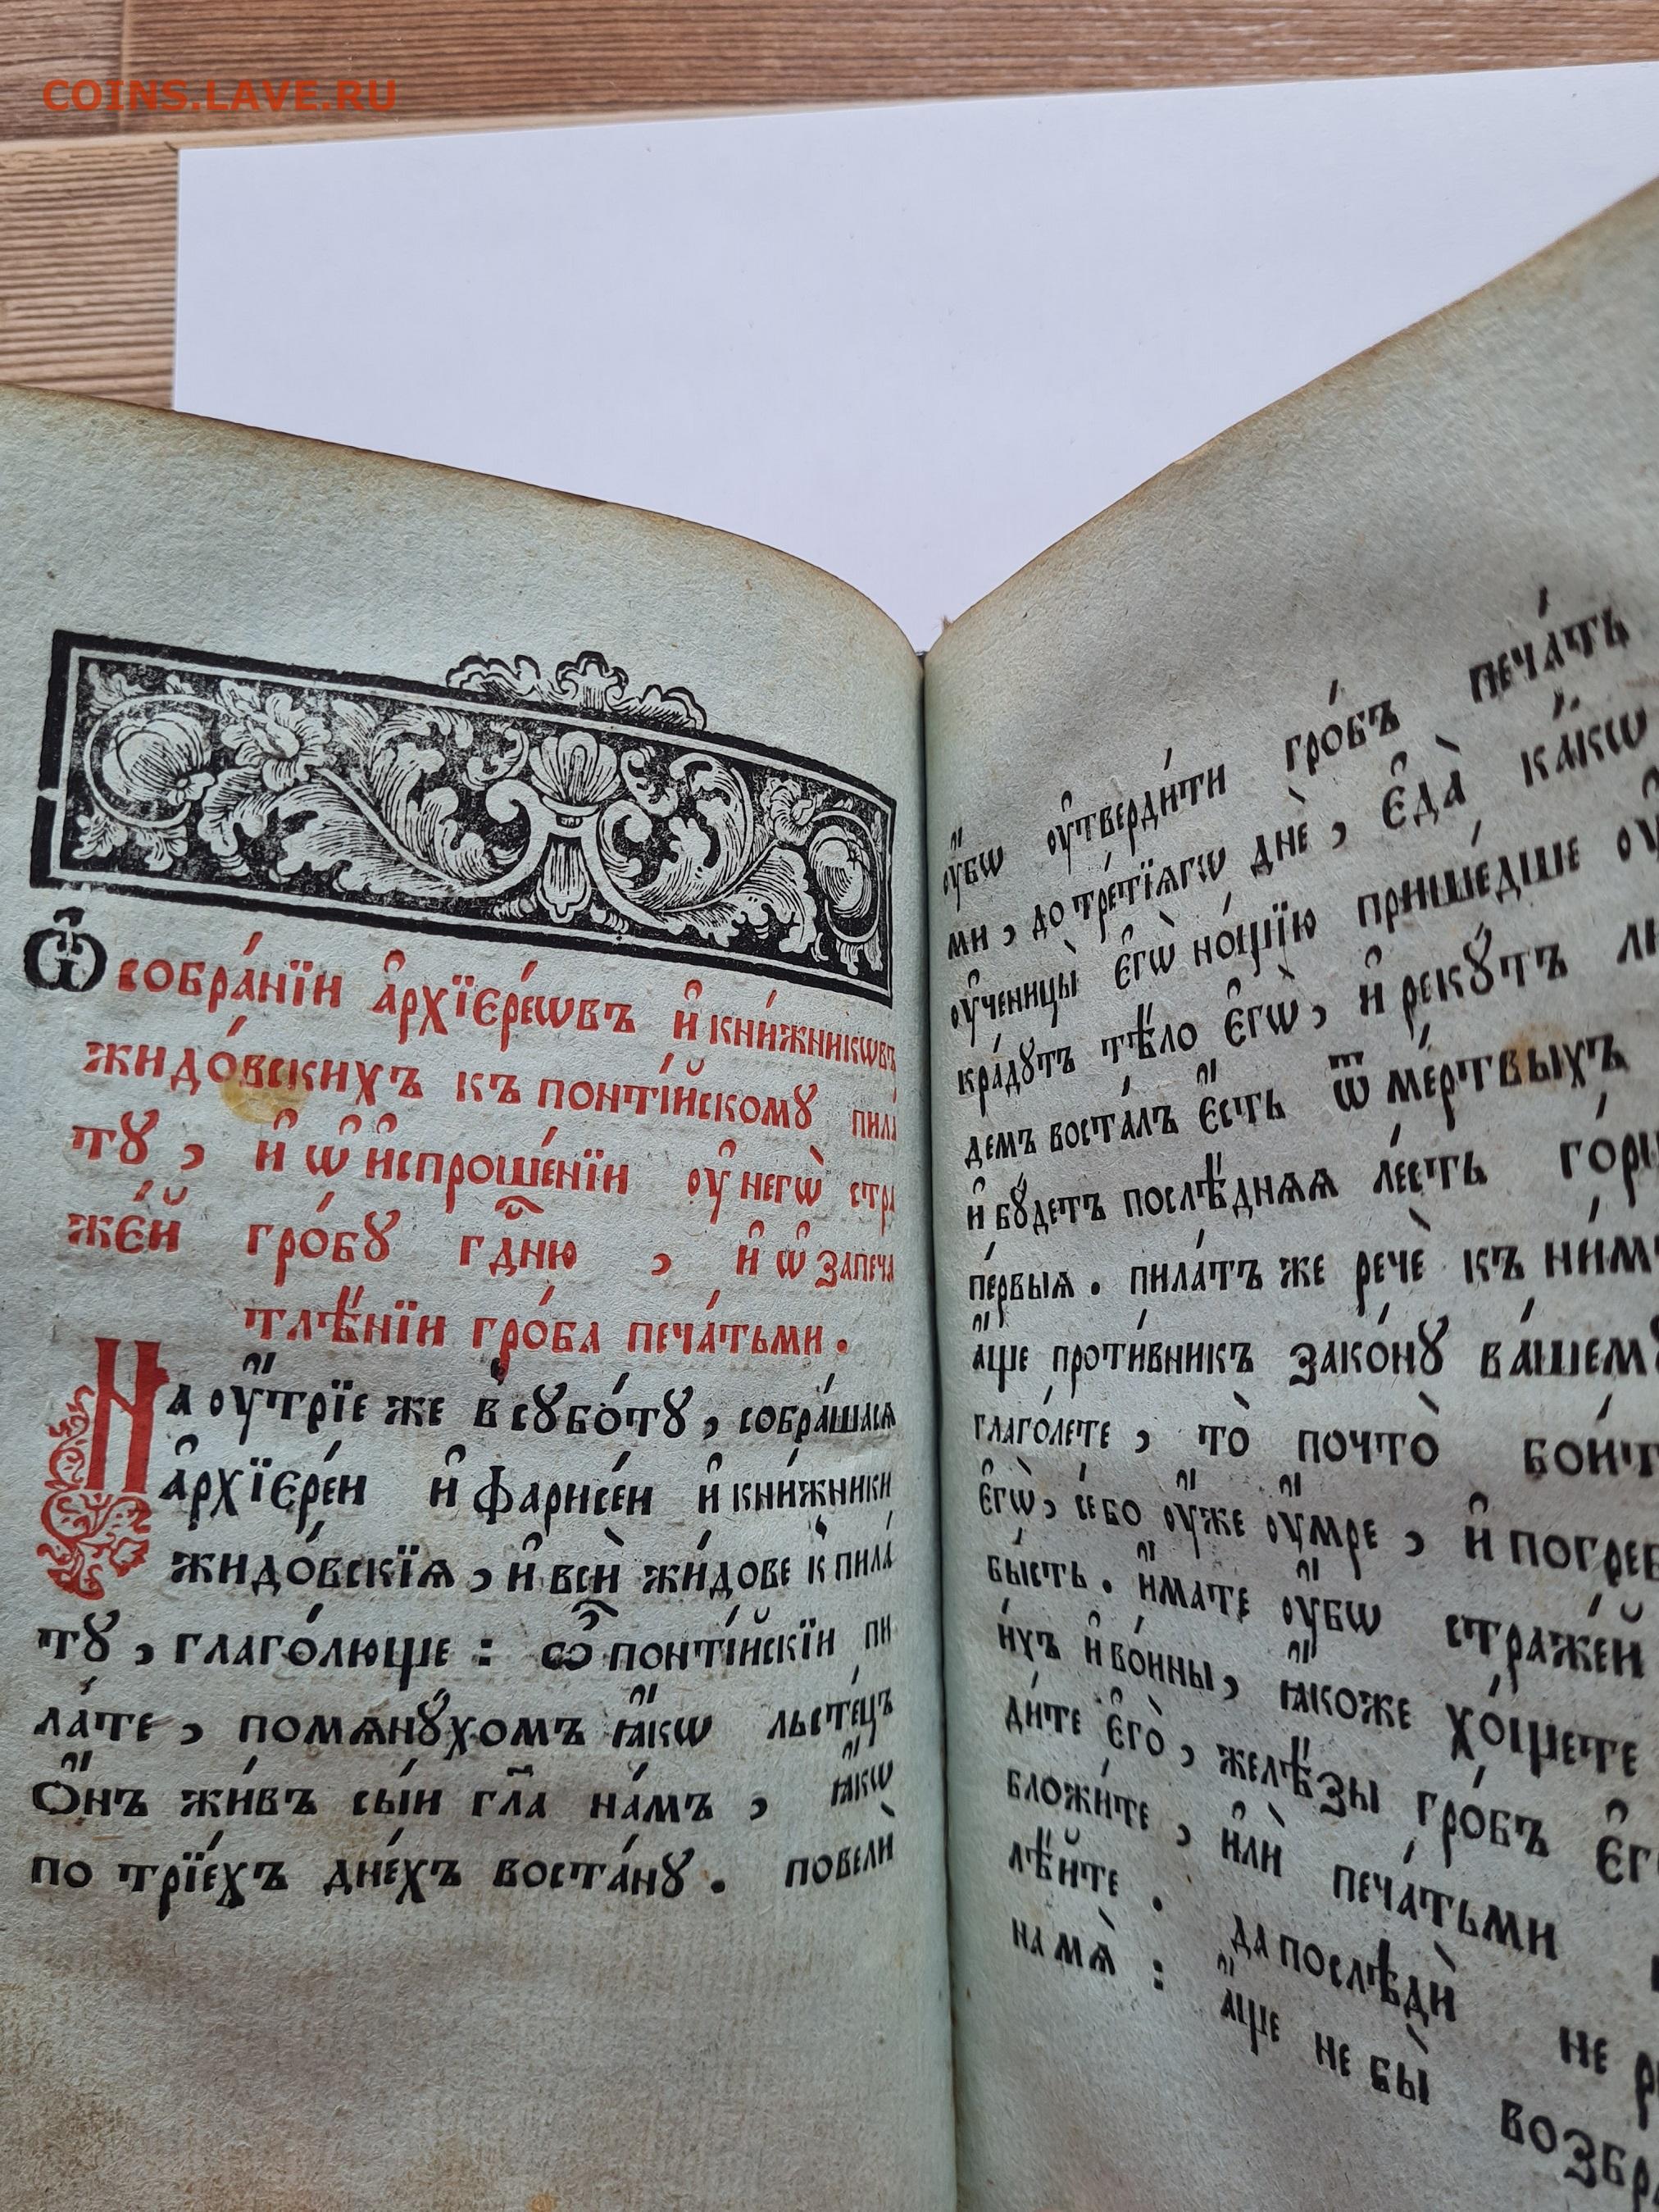 COINS.LAVE.RU
Ѽ собра́нїи а҆рхїере́ѡвъ и҆ кни́жникѡвъ
жидо́вскихъ къ понті́йскому пила́
ту , и҆ ѡ҆ и҆спроше́нїи ᲂу҆ негѡ̀ стра
же́й гро́бꙋ гд҇ню , и҆ ѡ҆ запеча
тлѣ́нїи гро́ба печа́тьми .
На ᲂу҆́трїе же в сꙋбо́тꙋ , собра́шася
а҆рхїере́и и҆ фарисе́и и҆ кни́жники
жидо́вскїя , и҆ всѝ жи́дове к пила́
тꙋ , глаго́люще : ѽ понті́йскїи пи
ла́те , помянꙋ́хомъ ꙗ҆́кѡ льсте́цъ
ѻ҆́нъ жи́въ сы́и гл҃а на́мъ , ꙗ҆́кѡ
по трїе́хъ дне́хъ воста́нꙋ . повелѝ
ᲂу҆́бѡ ᲂу҆тверди́ти гро́бъ печа́ть
ми , до тре́тїягѡ днѐ , є҆да̀ ка́кѡ
ᲂу҆ченицы̀ є҆гѡ̀ но́щїю прише́дше
кра́дꙋтъ тѣ́ло є҆гѡ̀ , и҆ рекꙋ́тъ
демъ воста́лъ є҆́сть ѿ ме́ртвыхъ
и҆ бꙋ́детъ послѣ́дняя ле́сть
пе́рвыя . пила́тъ же речѐ къ ни́мъ
а҆́ще проти́вникъ зако́нꙋ ва́шемꙋ
глаго́лете , то̀ почто̀
є҆гѡ̀ , се бо ᲂу҆́же ᲂу҆́мре , и҆ погреб
бы́сть . и҆́мате ᲂу҆́бѡ страже́й
и́хъ и҆ во́ины , ꙗ҆́коже хо́щете
ди́те є҆го̀ , желѣ́зы гро́бъ
бложи́те , и҆лѝ печа́тьми
лѣ́йте . да послѣдѝ не
на мя̀ : а҆́ще не бы̀